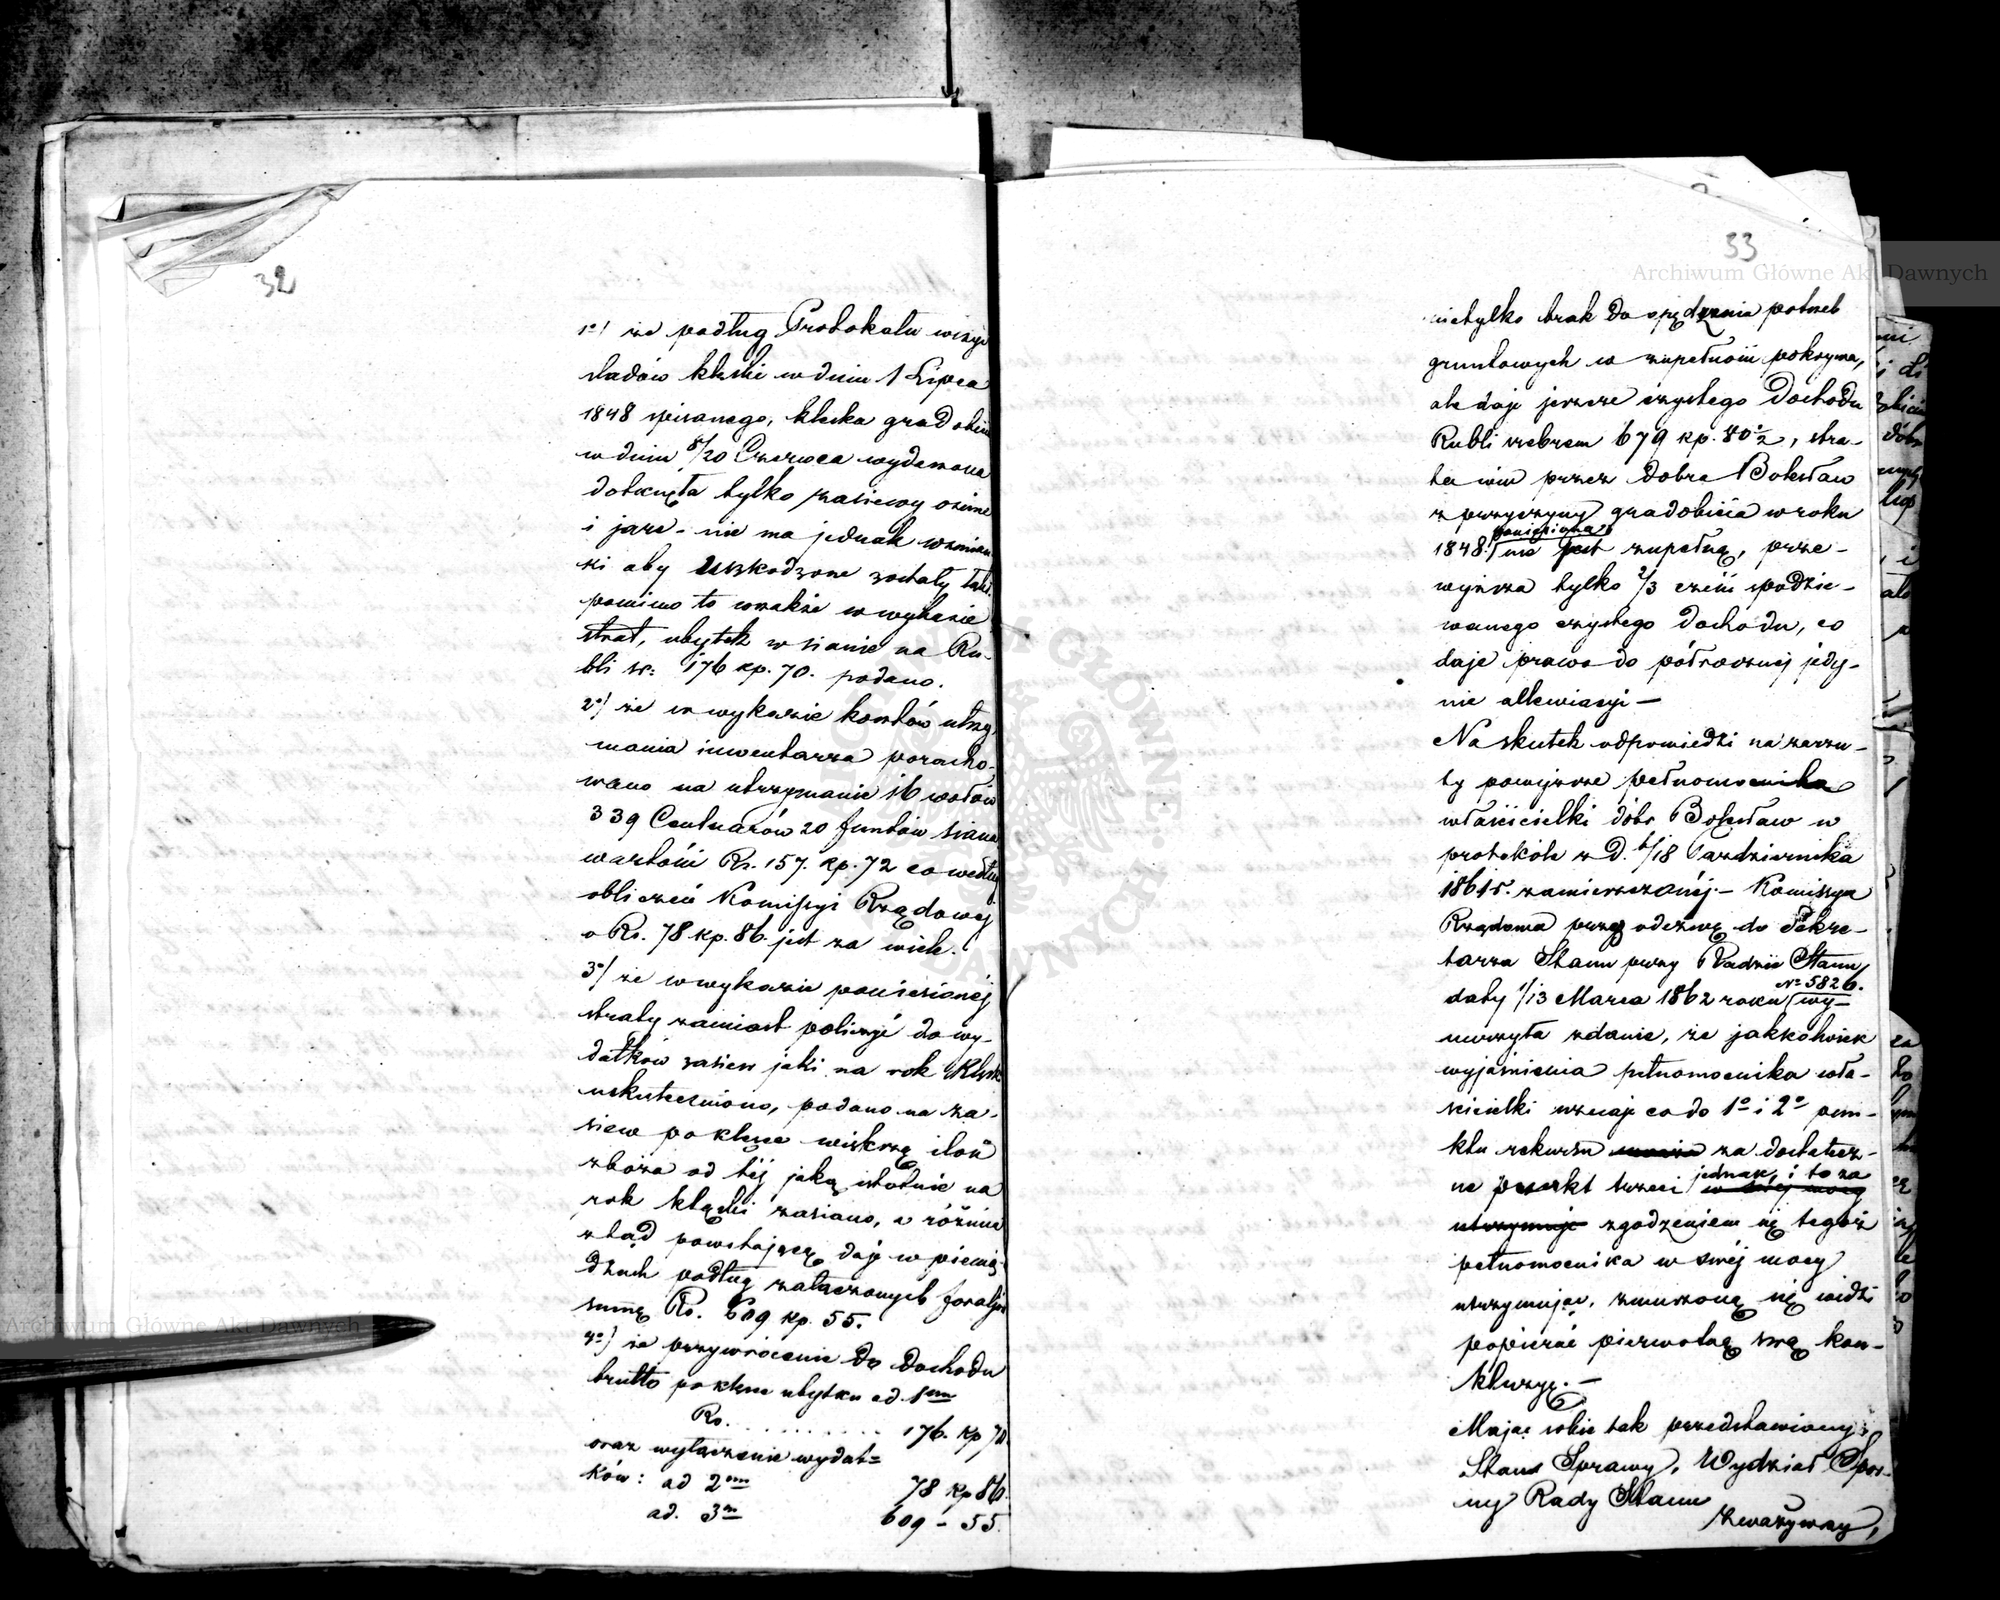 32
1o/ że podług Protokułu wizyi
śladów klęski w dniu 1 Lipca
1848 spisanego, klęska gradobicia
w dniu 8/20 Czerwca wydarzona
dotknęła tylko zasiewy ozime
i jare - nie ma jednak wzmian
ki aby uszkodzone zostały łąki.
pomimo to wszakże w wykazie
strat, ubytek w sianie na Ru-
bli sr: 176 kp. 70. podano.
2o/ że w wykazie kosztów utrzy
mania inwentarza poracho-
wano na utrzymanie 16 wołów
339 Centnarów 20 funtów siana
wartości Rs. 157. kp. 72 co według
obliczeń Komisyi Rządowej
o Rs. 78 kp. 86. jest za wiele.
3o/ że w wykazie poniesionej
straty zamiast policzyć do wy-
datków zasiew jaki na rok klęski
uskuteczniono, podano na za-
siew po klęsce większą ilość
zboża od tej jaką istotnie na
rok klęski zasiano, a różnica
ztąd powstająca daje w pienią-
dzach podług załączonych foralji
summę Rs. 609 kp. 55.
4o/ że przywrócenie do dochodu
brutto po klęsce ubytku ad 1mm
Rs. . . . . . . . . 176. kp 70.
oraz wyłączenie wydat=
ków: ad 2mm 78 kp 86.
ad. 3m 609 - 55.
33
nietylko brak do opędzenia potrzeb
gruntowych w zupełności pokrywa,
ale daje jeszcze czystego dochodu
Rubli srebrem 679 kp. 80 1/2, stra-
ta więc przez dobra Bolesław
z przyczyny gradobicia w roku
poniesiona
1848. nie jest zupełną, prze-
wyższa tylko 2/3 części spodzie-
wanego czystego dochodu, co
daje prawo do półrocznej jedy-
nie allewiacyi —
Na skutek odpowiedzi na zarzu-
ty powyższe pełnomocnika
właścicielki dóbr Bolesław w
protokóle z D. 6/18 Października
1861 r. zamieszczonéj. - Komissya
Rządowa przez odezwę do Sekre-
tarza Stanu przy Radzie Stanu
No 5826.
daty 1/13 Marca 1862 roku wy-
nurzyła zdanie, że jakkolwiek
wyjaśnienia pełnomocnika wła-
ścicielki uznaje co do 1o i 2o pun-
ktu rekursu za dostatecz-
jednak, i to za
ne punkt trzeci w swej mocy
utrzymuje zgodzeniem się tegoż
pełnomocnika w swéj mocy
utrzymując, zmuszoną się widzi
popierać pierwotną swą kon-
kluzyę. —
Mając sobie tak przedstawiony
Stan Sprawy, Wydział Spor-
ny Rady Stanu
Zważywszy,
Archiwum Główne Akt Dawnych
Archiwum Główne Akt Dawnych